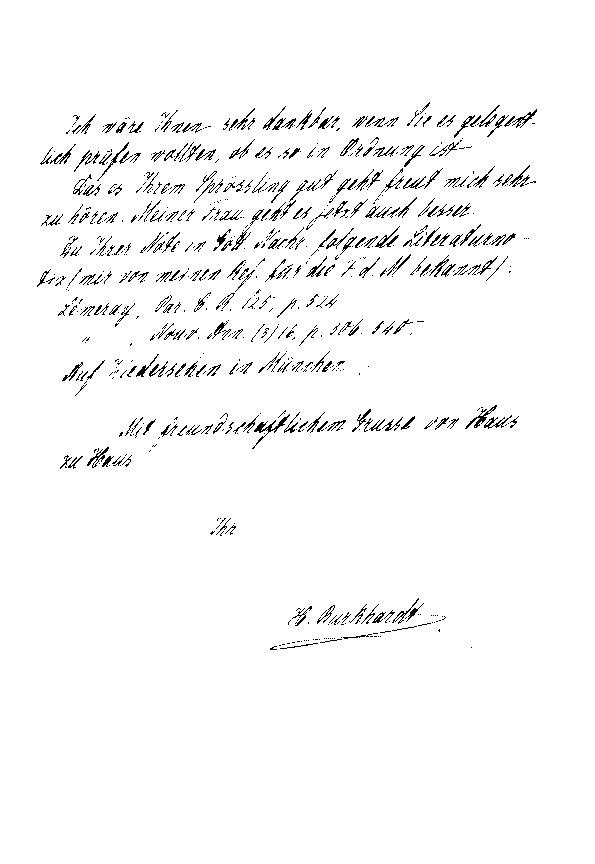 Ich wäre Ihnen sehr dankbar, wenn Sie es gelegent-
lich prüfen wollten, ob es so in Ordnung ist
Das es Ihrem Sprössling gut geht freut mich sehr
zu hören. Meiner Frau geht es jetzt auch besser.
Zu Ihrer Note in Gött. Nachr. folgende Literaturno-
tiz (mir von meinen Ref. für die F. d. M. bekannt):
Lémeray, Par. C. R. 125, p. 524
" , Nouv. Ann. (3) 16, p. 306. 540.
Auf Wiedersehen in München.
Mit freundschaftlichem Grusse von Haus
zu Haus
Ihr
H. Burkhardt